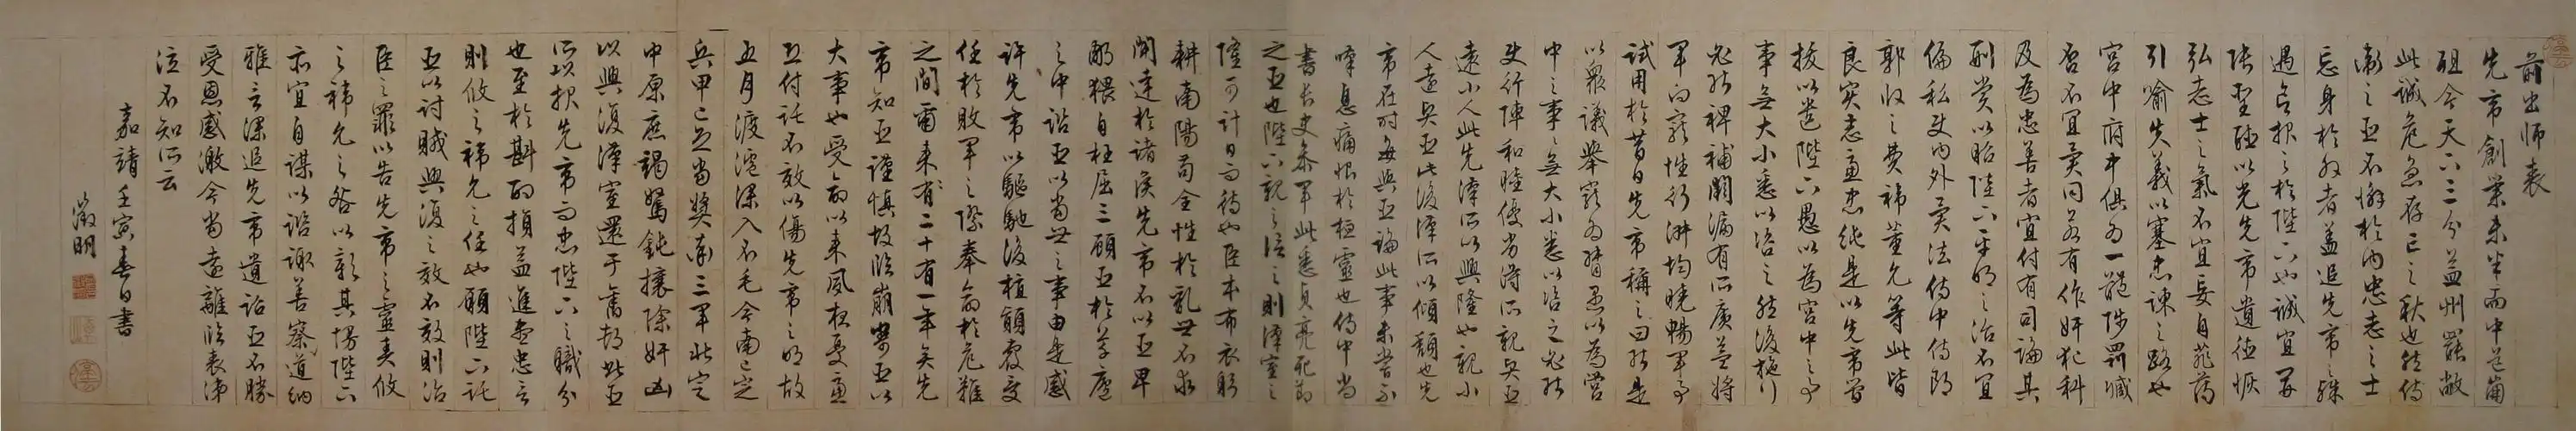 前出師表
先帝創業未半而中道崩
殂今天下三分益州罷敝
此誠危急存亡之秋也然侍
衛之臣不懈於內忠志之士
忘身於外者蓋追先帝之殊
遇欲報之於陛下也誠宜開
張聖聽以光先帝遺德恢
弘志士之氣不宜妄自菲薄
引喻失義以塞忠諫之路也
宮中府中俱為一體陟罰臧
否不宜異同若有作奸犯科
及為忠善者宜付有司論其
刑賞以昭陛下平明之治不宜
偏私使內外異法侍中侍郎
郭攸之費禕董允等此皆
良實志慮忠純是以先帝簡
拔以遺陛下愚以為宮中之事
事無大小悉以咨之然後施行
必能裨補闕漏有所廣益將
軍向寵性行淑均曉暢軍事
試用於昔日先帝稱之曰能是
以眾議舉寵為督愚以為營
中之事事無大小悉以咨之必能
使行陣和睦優劣得所親賢臣
遠小人此先漢所以興隆也親小
人遠賢臣此後漢所以傾頹也先
帝在時每與臣論此事未嘗不
嘆息痛恨於桓靈也侍中尚
書長史參軍此悉貞亮死節
之臣也陛下親之信之則漢室之
隆可計日而待也臣本布衣躬
耕南陽苟全性於亂世不求
聞達於諸侯先帝不以臣卑
鄙猥自枉屈三顧臣於草廬
之中諮臣以當世之事由是感
許先帝以驅馳後值傾覆受
任於敗軍之際奉命於危難
之間爾來有二十有一年矣先
帝知臣謹慎故臨崩寄臣以
大事也受命以來夙夜憂慮
恐付託不效以傷先帝之明故
五月渡瀘深入不毛今南已定
兵甲已足當獎率三軍北定
中原庶竭駑鈍攘除奸凶
以興復漢室還于舊都此臣
所以報先帝而忠陛下之職分
也至於斟酌損益進盡忠言
則攸之禕允之任也願陛下託
臣以討賊興復之效不效則治
臣之罪以告先帝之靈責攸
之禕允之咎以彰其慢陛下
亦宜自謀以諮諏善察道納
雅言深追先帝遺詔臣不勝
受恩感激今當遠離臨表涕
泣不知所云
嘉靖壬寅春日書
徵明